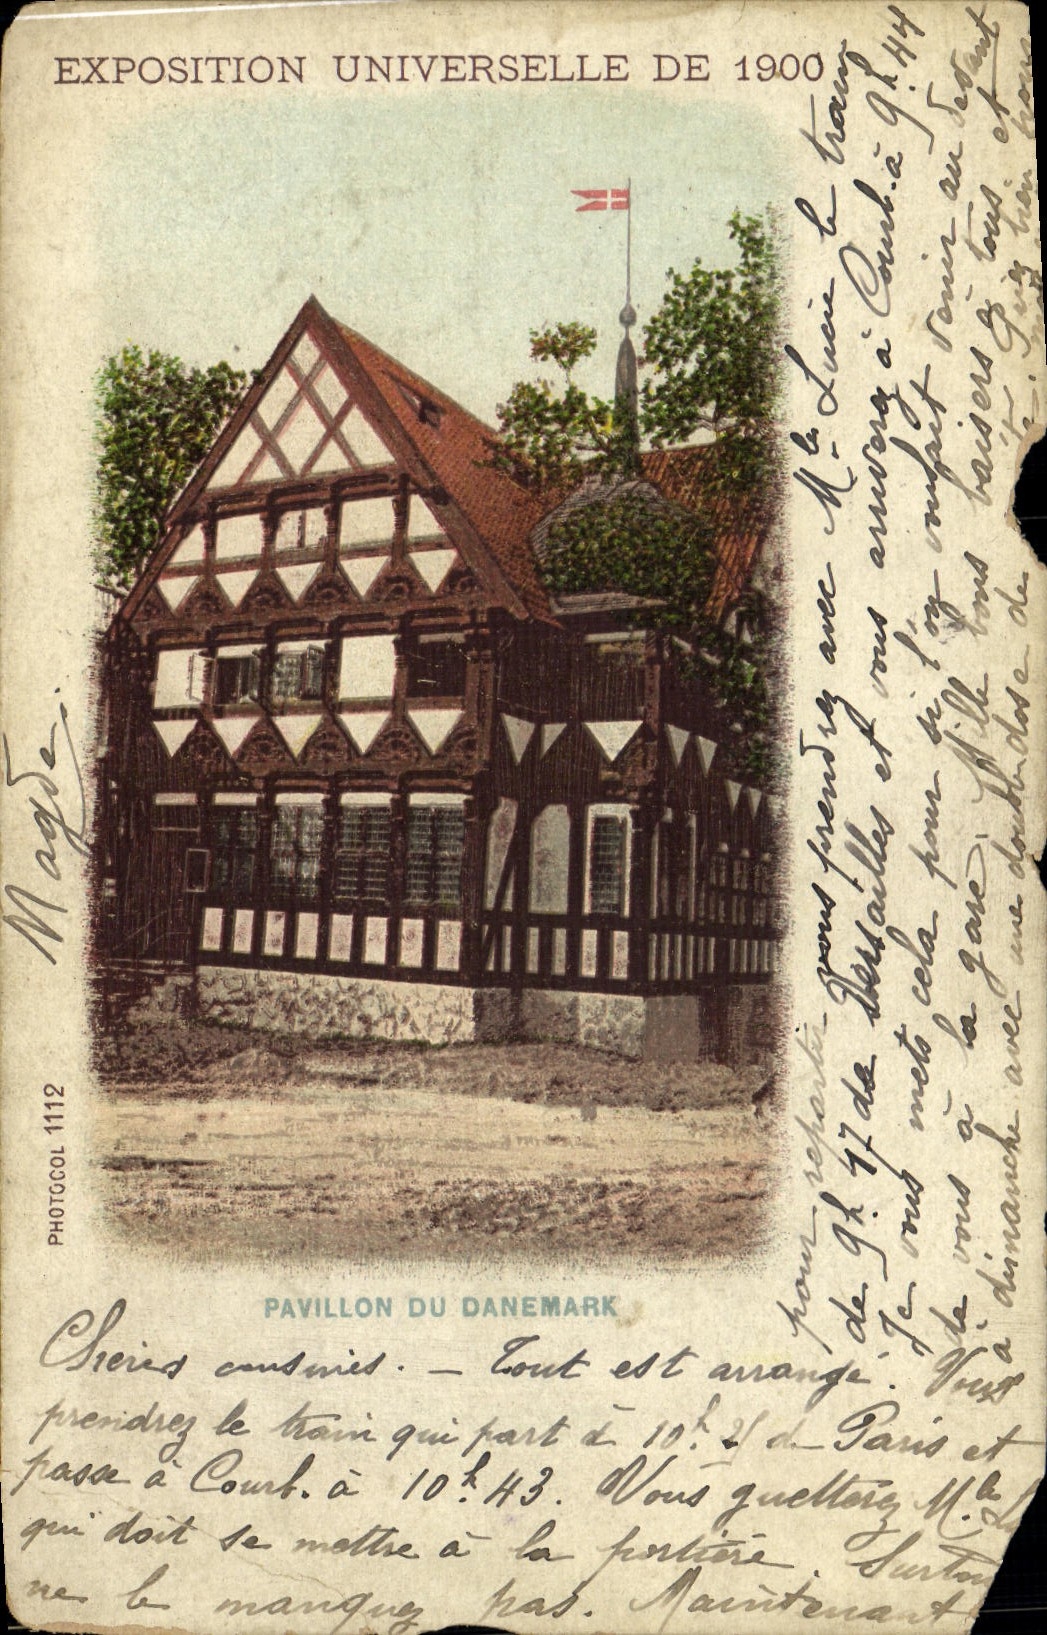 EXPOSITION UNIVERSELLE DE 1900
PAVILLON DU DANEMARK
PHOTOCOL 1112
Chères cousines. — Tout est arrangé. Vous
prendrez le train qui part à 10h. 25 de Paris et
passe à Courb. à 10h. 43. Vous guetterez Mlle
qui doit se mettre à la portière. Surtout
ne le manquez pas. Maintenant
pour repartir vous prendrez avec Mlle Lucie le train
de 9h. 17 de Versailles et vous arriverez à Courb. à 9h. 44
Je vous mets cela pour si l'on voulait venir au devant
de vous à la gare. Mille bons baisers à tous et
à dimanche avec une double dose de
Magde.